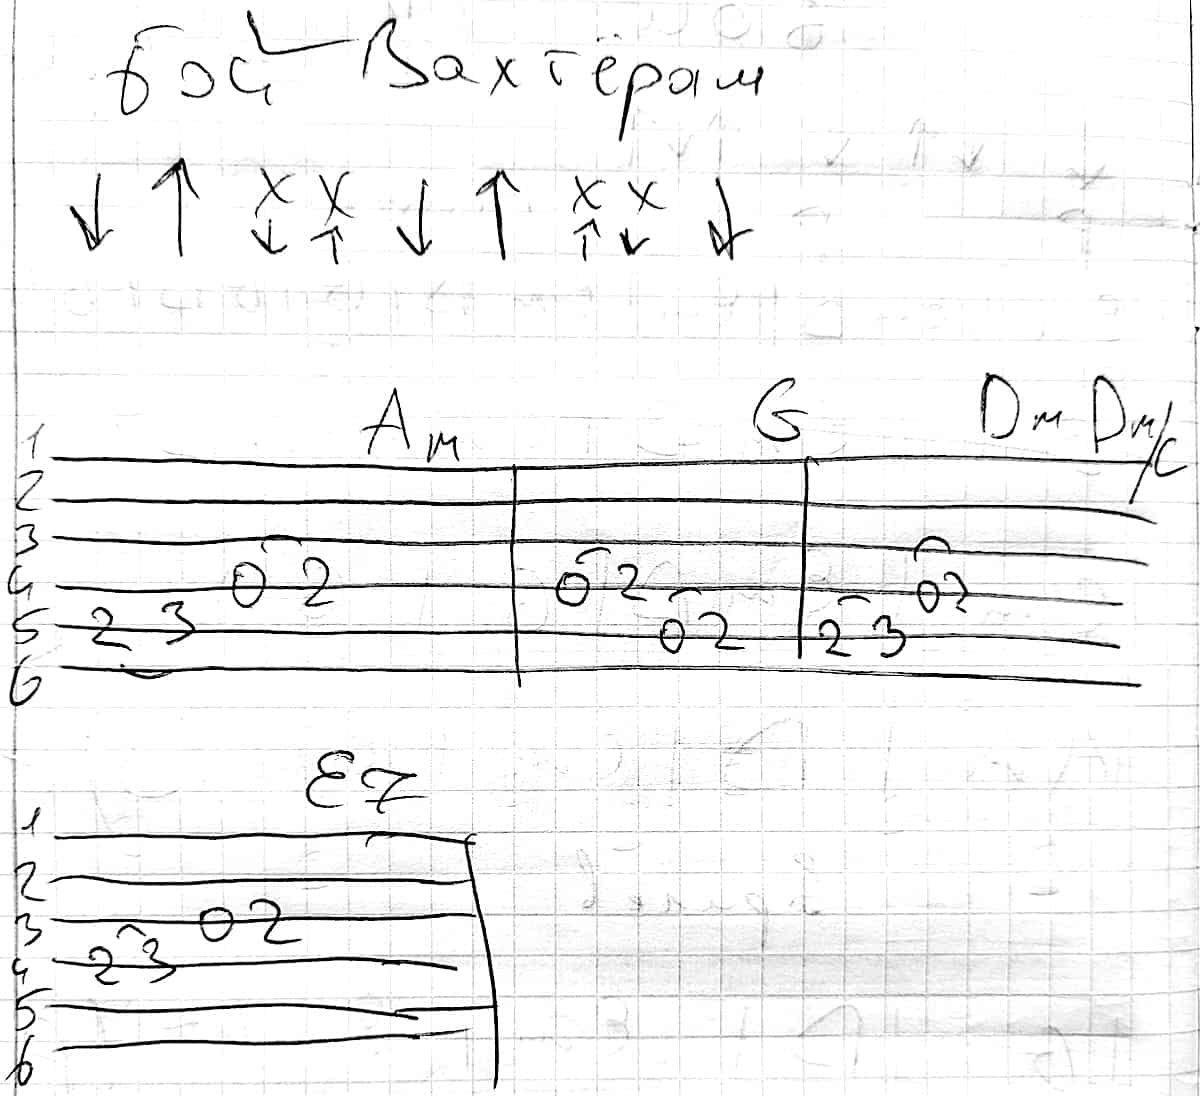 бой Вахтёрам
↓ ↑ x↓ x↑ ↓ ↑ x↑ x↓ ↓
Am G Dm Dm/C
1
2
3
4 0 2 0 2 0 2
5 2 3 0 2 2 3
6
E7
1
2
3 0 2
4 2 3
5
6